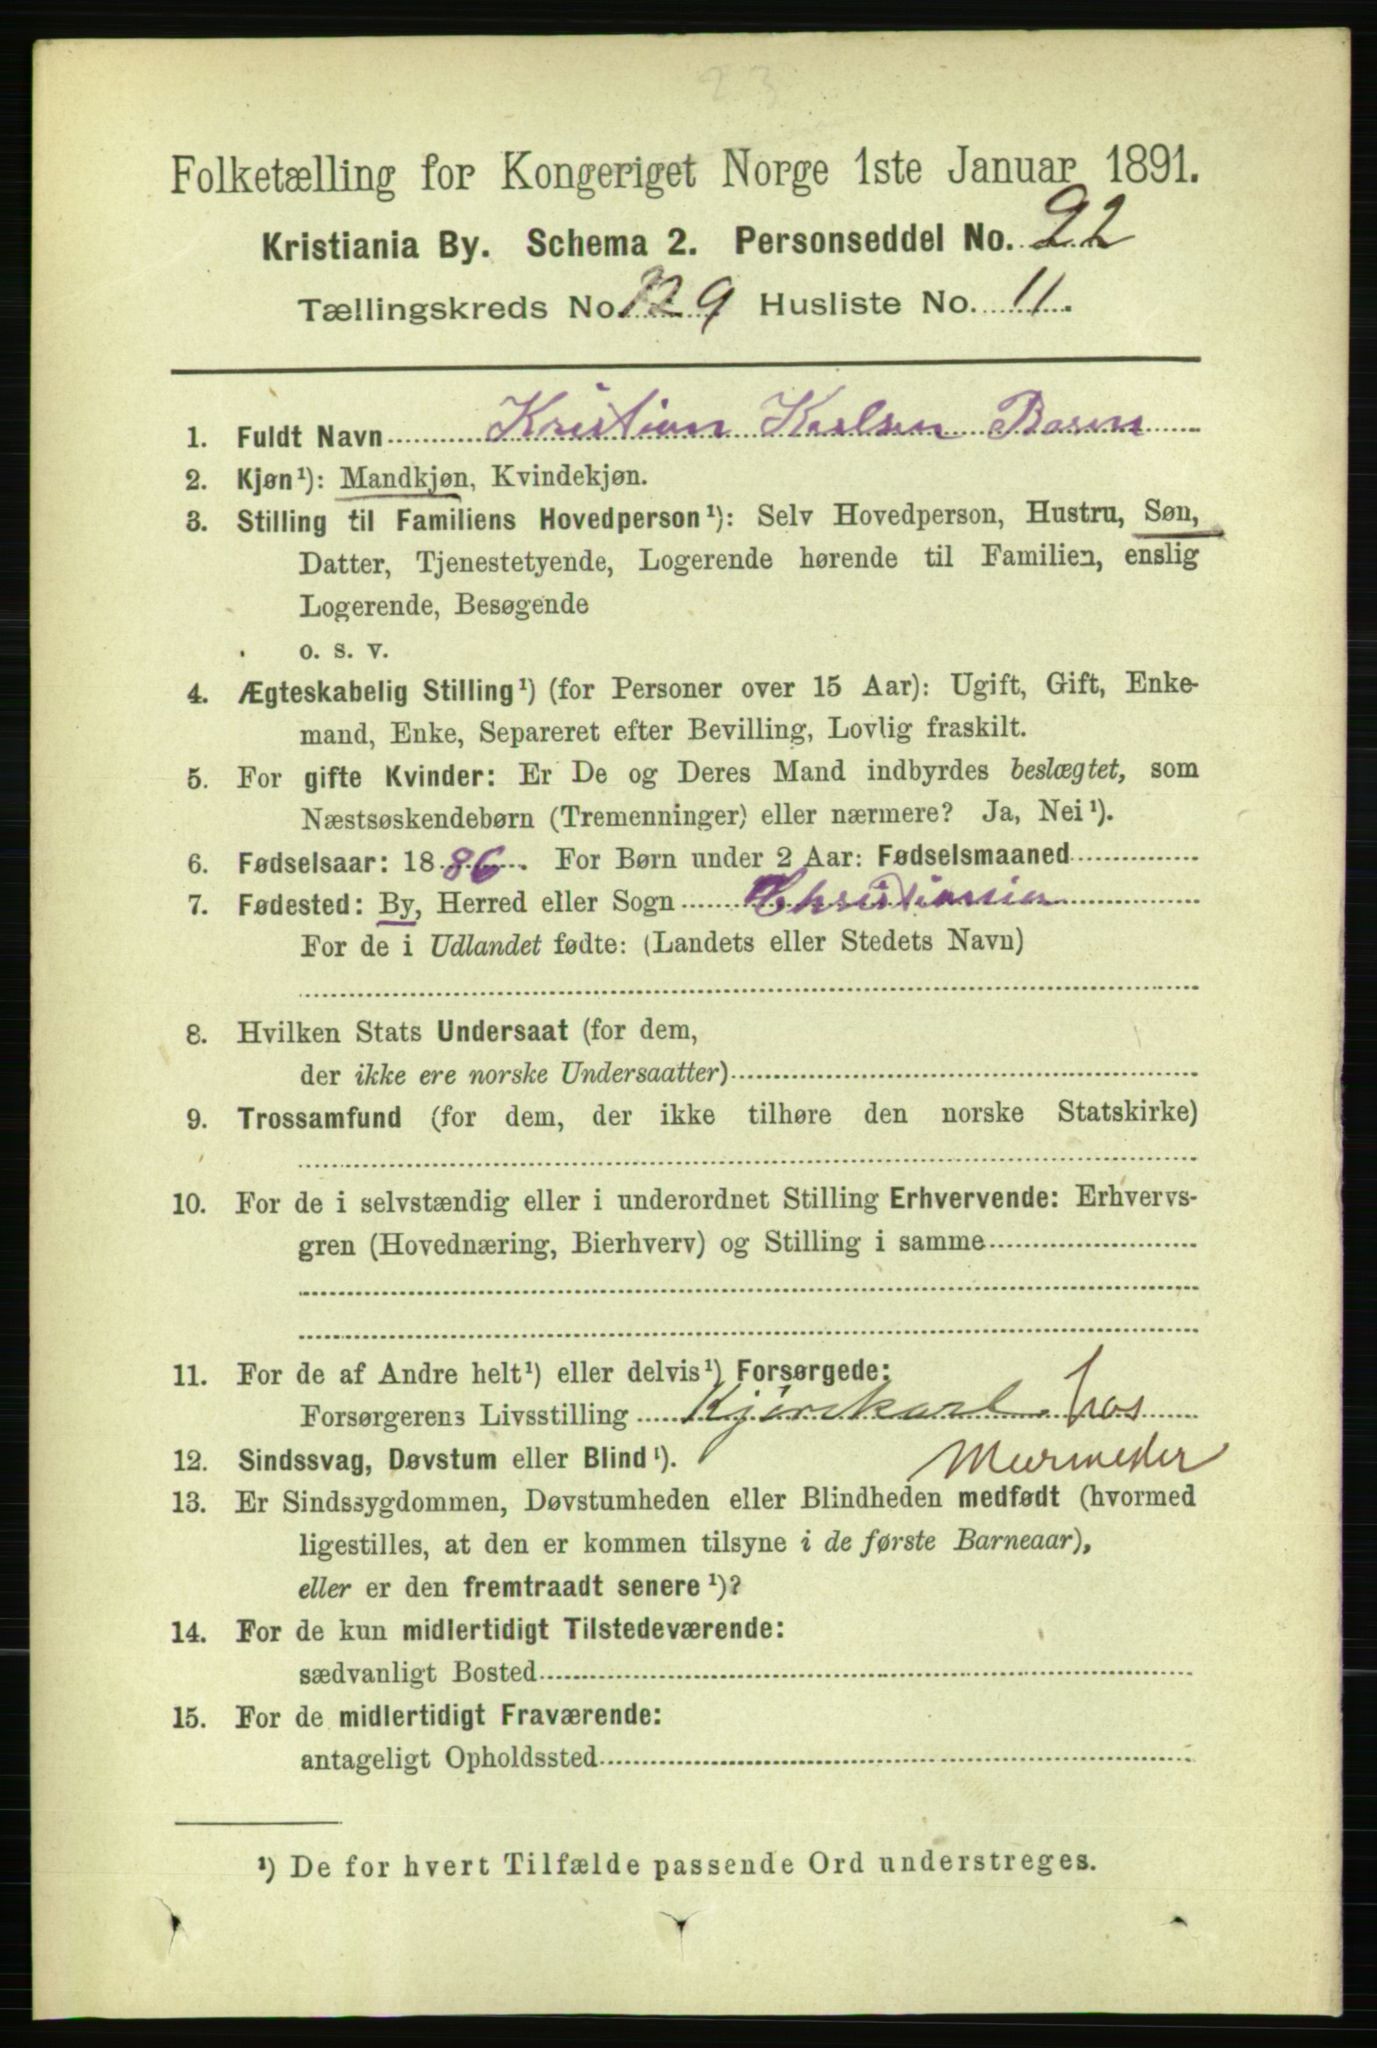 23
Folketælling for Kongeriget Norge 1ste Januar 1891.
Kristiania By. Schema 2. Personseddel No. 22
Tællingskreds No. 129 Husliste No. 11.
1. Fuldt Navn Kristian Karlsen
2. Kjøn¹): Mandkjøn, Kvindekjøn.
3. Stilling til Familiens Hovedperson¹): Selv Hovedperson, Hustru, Søn,
Datter, Tjenestetyende, Logerende hørende til Familien, enslig
Logerende, Besøgende
o. s. v.
4. Ægteskabelig Stilling¹) (for Personer over 15 Aar): Ugift, Gift, Enke-
mand, Enke, Separeret efter Bevilling, Lovlig fraskilt.
5. For gifte Kvinder: Er De og Deres Mand indbyrdes beslægtet, som
Næstsøskendebørn (Tremenninger) eller nærmere? Ja, Nei¹).
6. Fødselsaar: 1886. For Børn under 2 Aar: Fødselsmaaned
7. Fødested: By, Herred eller Sogn Christiania
For de i Udlandet fødte: (Landets eller Stedets Navn)
8. Hvilken Stats Undersaat (for dem,
der ikke ere norske Undersaatter)
9. Trossamfund (for dem, der ikke tilhøre den norske Statskirke)
10. For de i selvstændig eller i underordnet Stilling Erhvervende: Erhvervs-
gren (Hovednæring, Bierhverv) og Stilling i samme
11. For de af Andre helt¹) eller delvis¹) Forsørgede:
Forsørgerens Livsstilling Kjørekarl hos
12. Sindssvag, Døvstum eller Blind¹). Murmester
13. Er Sindssygdommen, Døvstumheden eller Blindheden medfødt (hvormed
ligestilles, at den er kommen tilsyne i de første Barneaar),
eller er den fremtraadt senere¹)?
14. For de kun midlertidigt Tilstedeværende:
sædvanligt Bosted
15. For de midlertidigt Fraværende:
antageligt Opholdssted
¹) De for hvert Tilfælde passende Ord understreges.